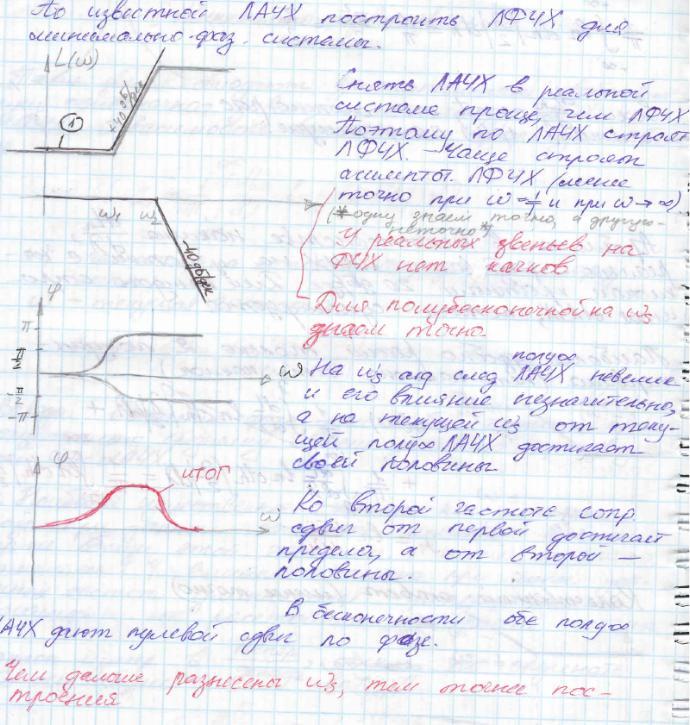 По известной ЛАЧХ построить ЛФЧХ для
минимально-фаз. системы.
L(ω)
1
+40 дб/дек
Снять ЛАЧХ в реальной
системе проще, чем ЛФЧХ.
Поэтому по ЛАЧХ строят
ЛФЧХ. Чаще строят
асимптот. ЛФЧХ (менее
точно при ω=1/T и при ω→∞)
(*одну знаем точно, а другую-
неточно*)
ω1
ω2
-40 дб/дек
У реальных звеньев на
ФЧХ нет качков
Для полубесконечной на ω3
знаем точно.
φ
π
π/2
-π/2
-π
ω
полубо
На ω3 след ЛАЧХ невелик
и его влияние незначительно,
а на текущей ω3 от теку-
щей полубо ЛАЧХ достигает
своей половины
φ
итог
ω
Ко второй частоте сопр.
сдвиг от первой достигает
предела, а от второй —
половины.
В бесконечности обе полубо
ЛАЧХ дают нулевой сдвиг по фазе.
Чем дальше разнесены ω3, тем точнее пос-
троения